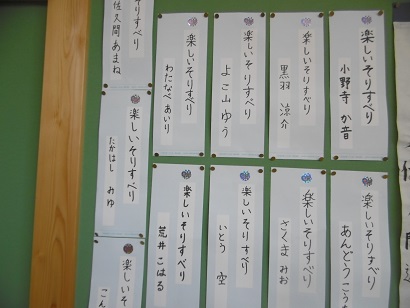 楽しいそりすべり
小野寺 か音
楽しいそりすべり
黒羽 涼介
楽しいそりすべり
よこ山 ゆう
楽しいそりすべり
わたなべ あいり
すべり
佐久間 あまね
楽しいそりすべり
あんどう こう
楽しいそりすべり
さくま みお
楽しいそりすべり
いとう 空
楽しいそりすべり
荒井 こはる
楽しいそりすべり
たかはし みゆ
楽しいそ
こん